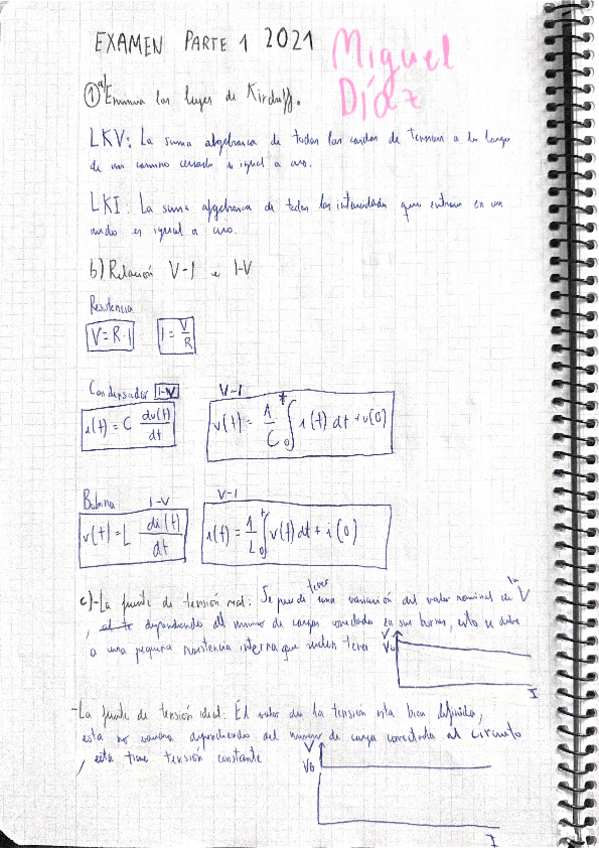 EXAMEN PARTE 1 2021
Miguel
Díaz
① a) Enuncia las leyes de Kirchoff.
LKV: La suma algebraica de todas las caidas de tension a lo largo
de un camino cerrado es igual a cero.
LKI: La suma algebraica de todas las intensidades que entran en un
nudo es igual a cero.
b) Relación V-I e I-V
Resistencia
V=R·I I=V/R
Condensador I-V V-I
i(t)=C dv(t)/dt v(t)=1/C ∫₀ᵗ i(t) dt+v(0)
Bobina I-V V-I
v(t)=L di(t)/dt i(t)=1/L ∫₀ᵗ v(t) dt+i(0)
c)-La fuente de tensión real: Se puede tener una variación del valor nominal de la V
, dependiendo del numero de cargas conectada en sus bornes, esto se debe
a una pequeña resistencia interna que suelen tener
V
V₀
I
-La fuente de tensión ideal: El valor de la tension esta bien definida,
esta no variara dependiendo del numero de carga conectada al circuito
, esta tiene tensión constante
V
V₀
I